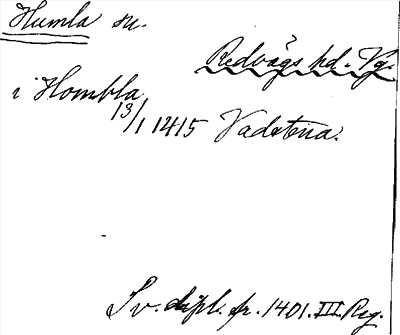 Humla sn.
Redvägs hd. Vg.
i Hombla
13/1 1415 Vadstena.
Sv. dipl. fr. 1401. III. Reg.